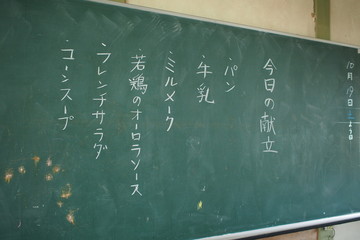 10月19日
今日の献立
・パン
・牛乳
・ミルメーク
・若鶏のオーロラソース
・フレンチサラダ
・コーンスープ